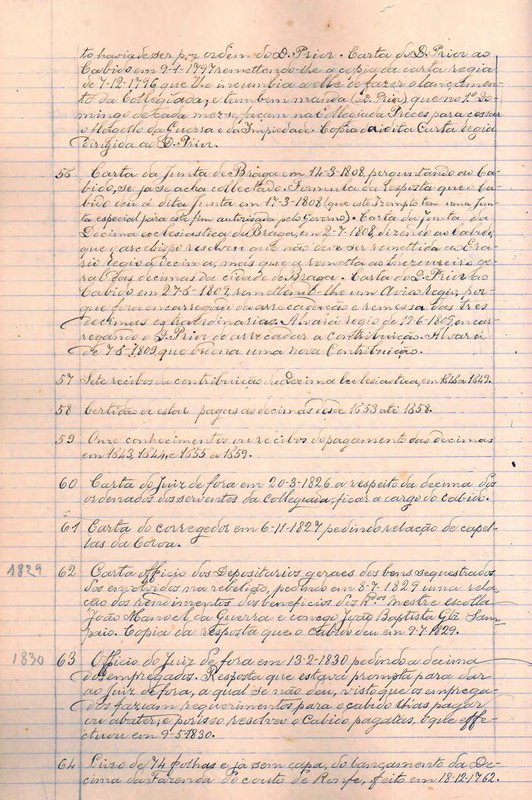 to havia de ser por ordem do D. Prior. Carta do D. Prior ao
Cabido em 9-1-1797 remettendo-lhe a copia da carta regia
de 7-12-1796 que lhe incumbia a elle de fazer o lançamento
da Collegiada; e tambem manda (o D. Prior) que no 1º do-
mingo de cada mez se façam na Collegiada Preces para cessar
o flagello da Guerra e da Impiedade. Copia da dita Carta Regia
dirigida ao D. Prior.
55 Carta da Junta de Braga em 14-3-1808, perguntando ao Ca-
bido, se já se acha collectado. Formula da Resposta que o Ca-
bido deu á dita junta em 17-3-1808 (que este Izempto tem uma Jun-
ta especial para este fim autorisada pelo Governo). Carta da Junta da
Decima ecclesiastica de Braga, em 2-7-1808, dizendo ao Cabido,
que o arcebispo resolveu que não deve ser remettida ao Era-
rio Regio a decima, mais que a remetta ao thezoureiro ge-
ral das decimas da cidade de Braga. Carta do D. Prior ao
Cabido em 27-5-1809, remettendo-lhe um Aviso Regio, por-
que fora encarregado da arrecadação e remessa das tres
decimas extraordinarias. Alvará regio de 17-6-1809, encar-
regando o D. Prior de arrecadar a contribuição. Alvará
de 7-5-1809, que ordena uma nova Contribuição.
57 Sete recibos da contribuição da Decima Ecclesiastica, em 1848 a 1849.
58 Certidão de estar pagas as decimas desde 1853 até 1858.
59 Onze conhecimentos ou recibos do pagamento das decimas
em 1843, 1844, e 1855 a 1859.
60 Carta do Juiz de fora em 20-3-1826 a respeito da decima dos
ordenados dos serventes da Collegiada, ficar a cargo do cabido.
61 Carta do corregedor em 6-11-1827 pedindo relação de capel-
las da Coroa.
1829 62 Carta officio dos Depositarios geraes dos bens sequestrados
dos envolvidos na rebelião, pedindo em 8-7-1829 uma rela-
ção dos rendimentos dos beneficios dos Rdos mestre escolla
João Manoel da Guerra e conego João Baptista Glz Sam-
paio. Copia da resposta que o Cabido deu em 9-7-1829.
1830 63 Officio do Juiz de fora em 13-2-1830 pedindo a decima
dos empregados. Resposta que estava prompta para dar
ao Juiz de fora, a qual se não deu, visto que os emprega-
dos faziam requerimentos para o cabido lhas pagar
ou abater, e por isso resolveu o Cabido pagalas. O que effe-
ctuou em 9-5-1830.
64 Livro de 74 folhas e já sem capa, do lançamento da De-
cima da Fazenda do couto de Ronfe, feito em 18-12-1762.